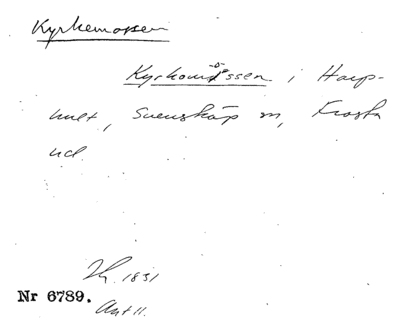 Kyrkemossen
Kyrkomossen i Harp-
hult, Svensköp sn, Frosta
hd.
1831
Nr 6789.
Akt 11.